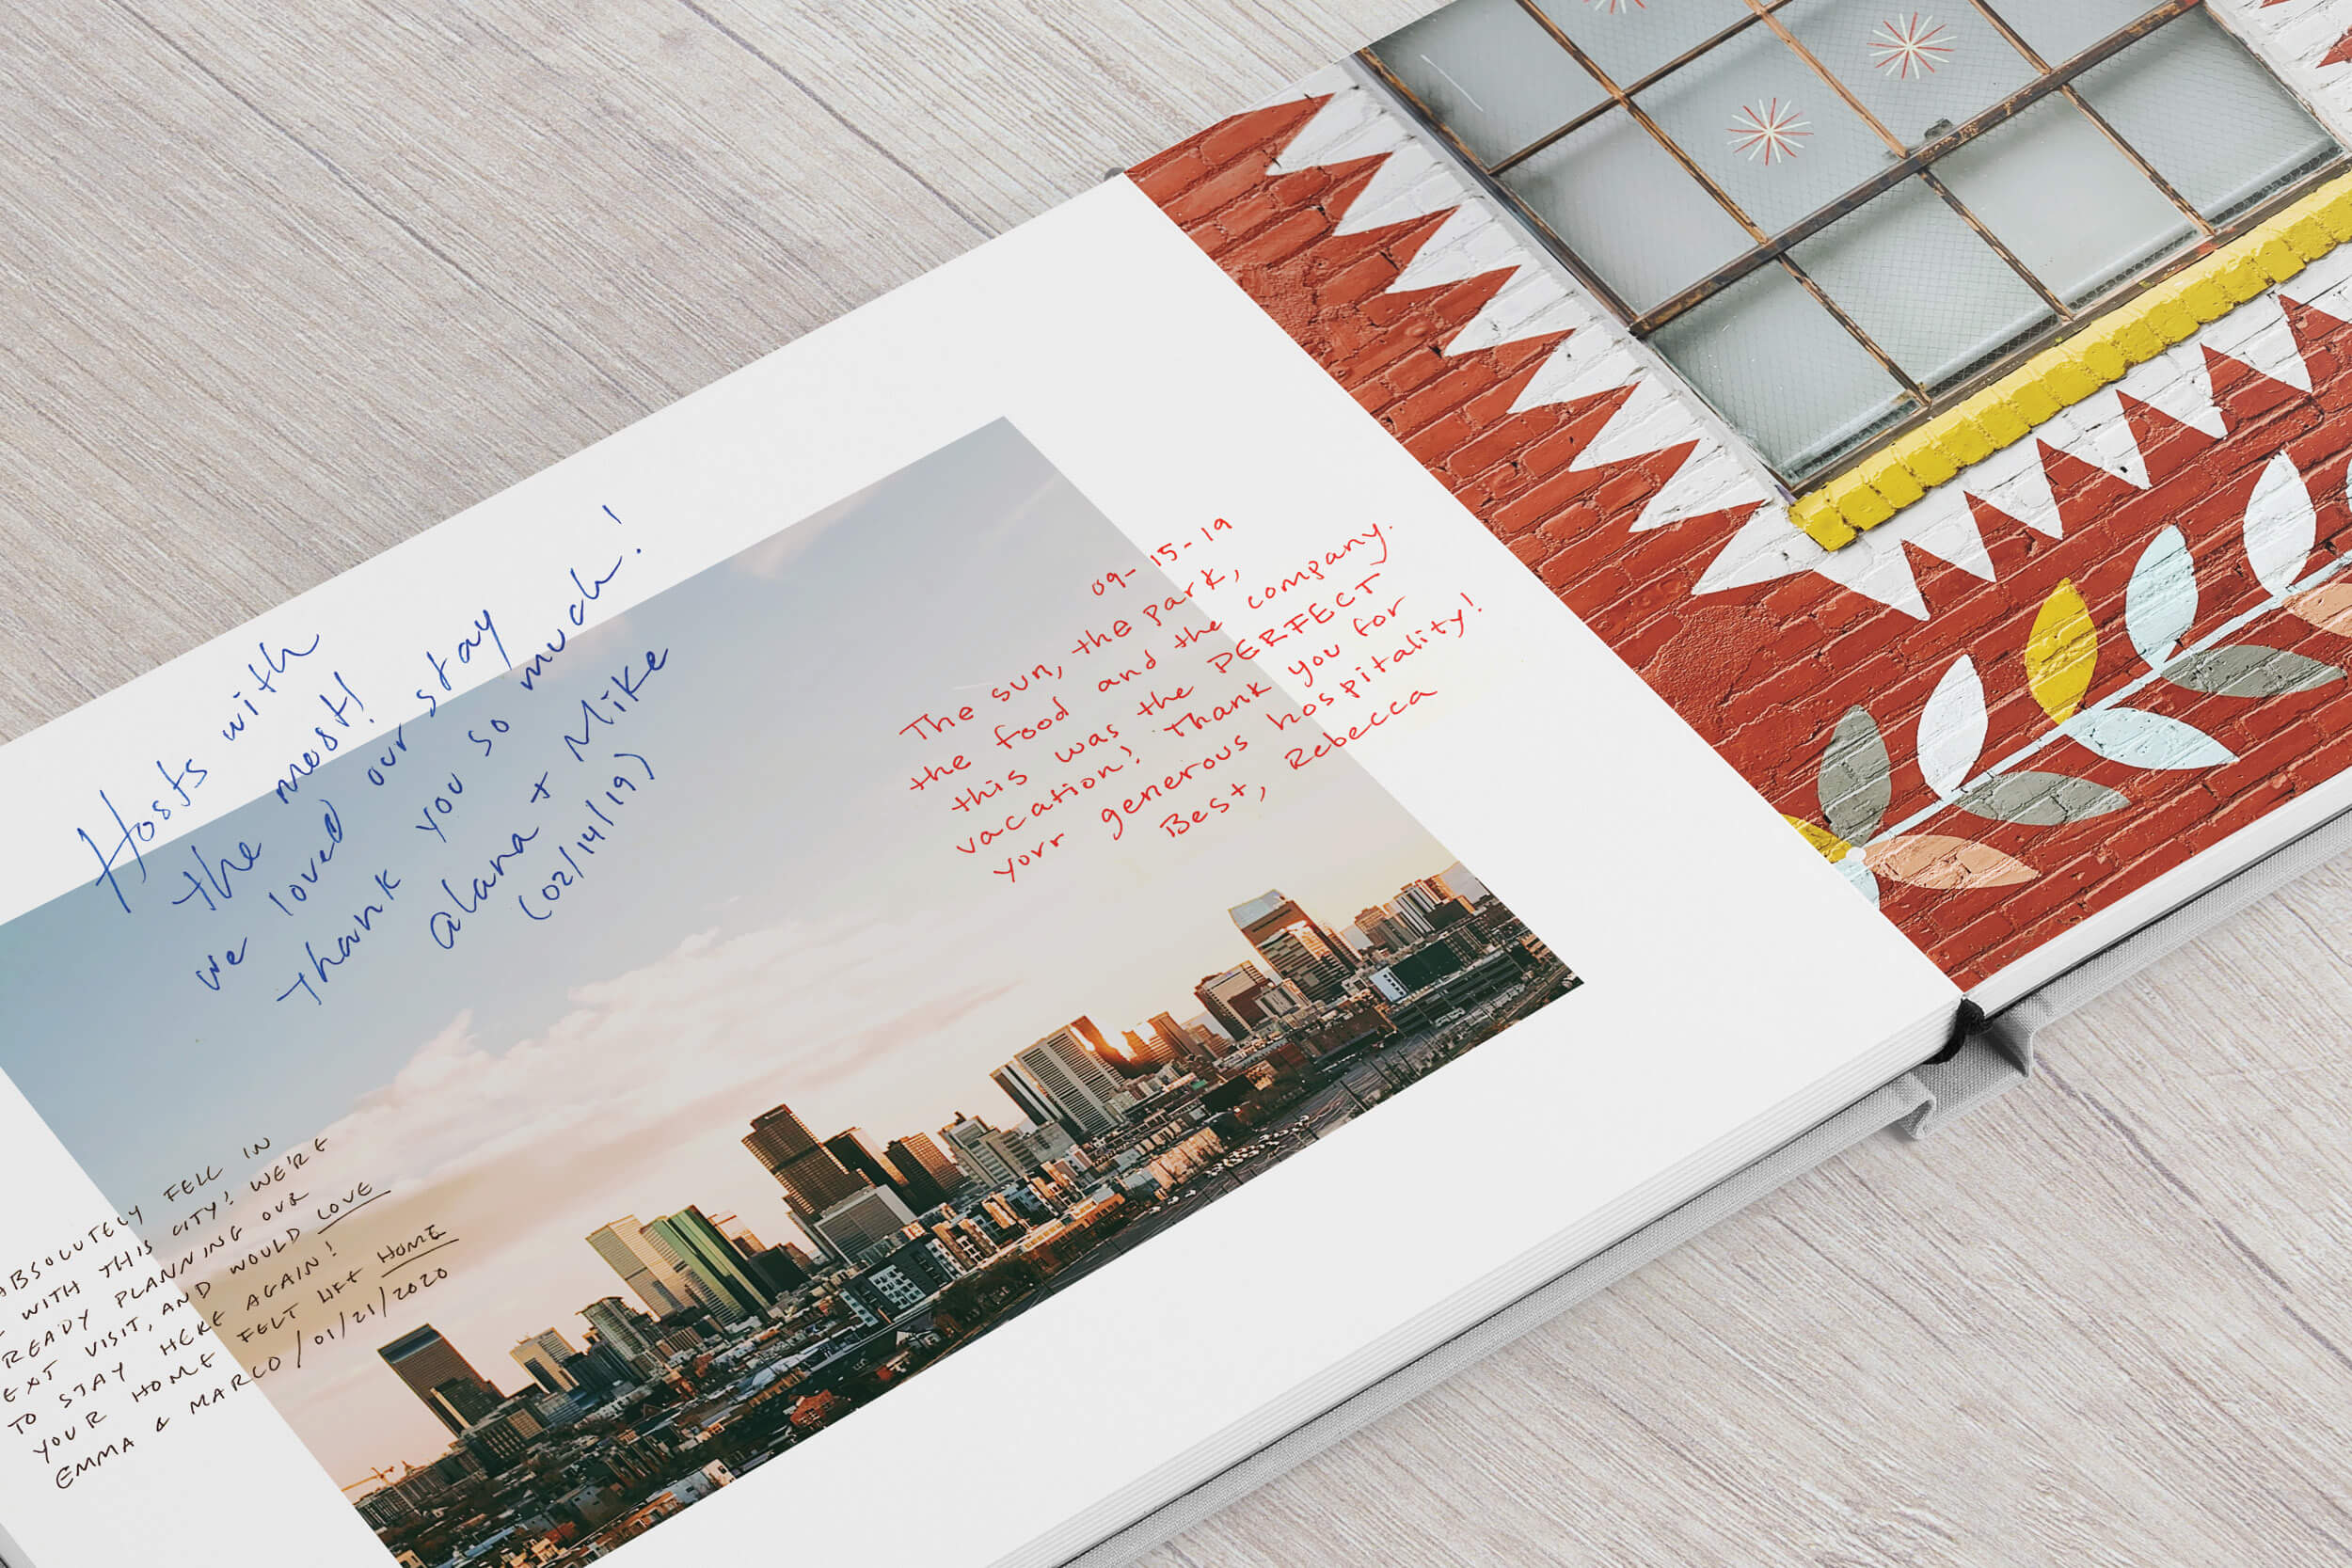 Hosts with
the most!
we loved our stay
Thank you so much!
alana + Mike
(02/14/19)
09-15-19
The sun, the park,
the food and the company.
this was the PERFECT
vacation! Thank you for
your generous hospitality!
Best, Rebecca
ABSOLUTELY FELL IN
WITH THIS CITY! WE'RE
READY PLANNING OUR
EXT VISIT, AND WOULD LOVE
TO STAY HERE AGAIN!
YOUR HOME FELT LIKE HOME
EMMA & MARCO / 01/21/2020